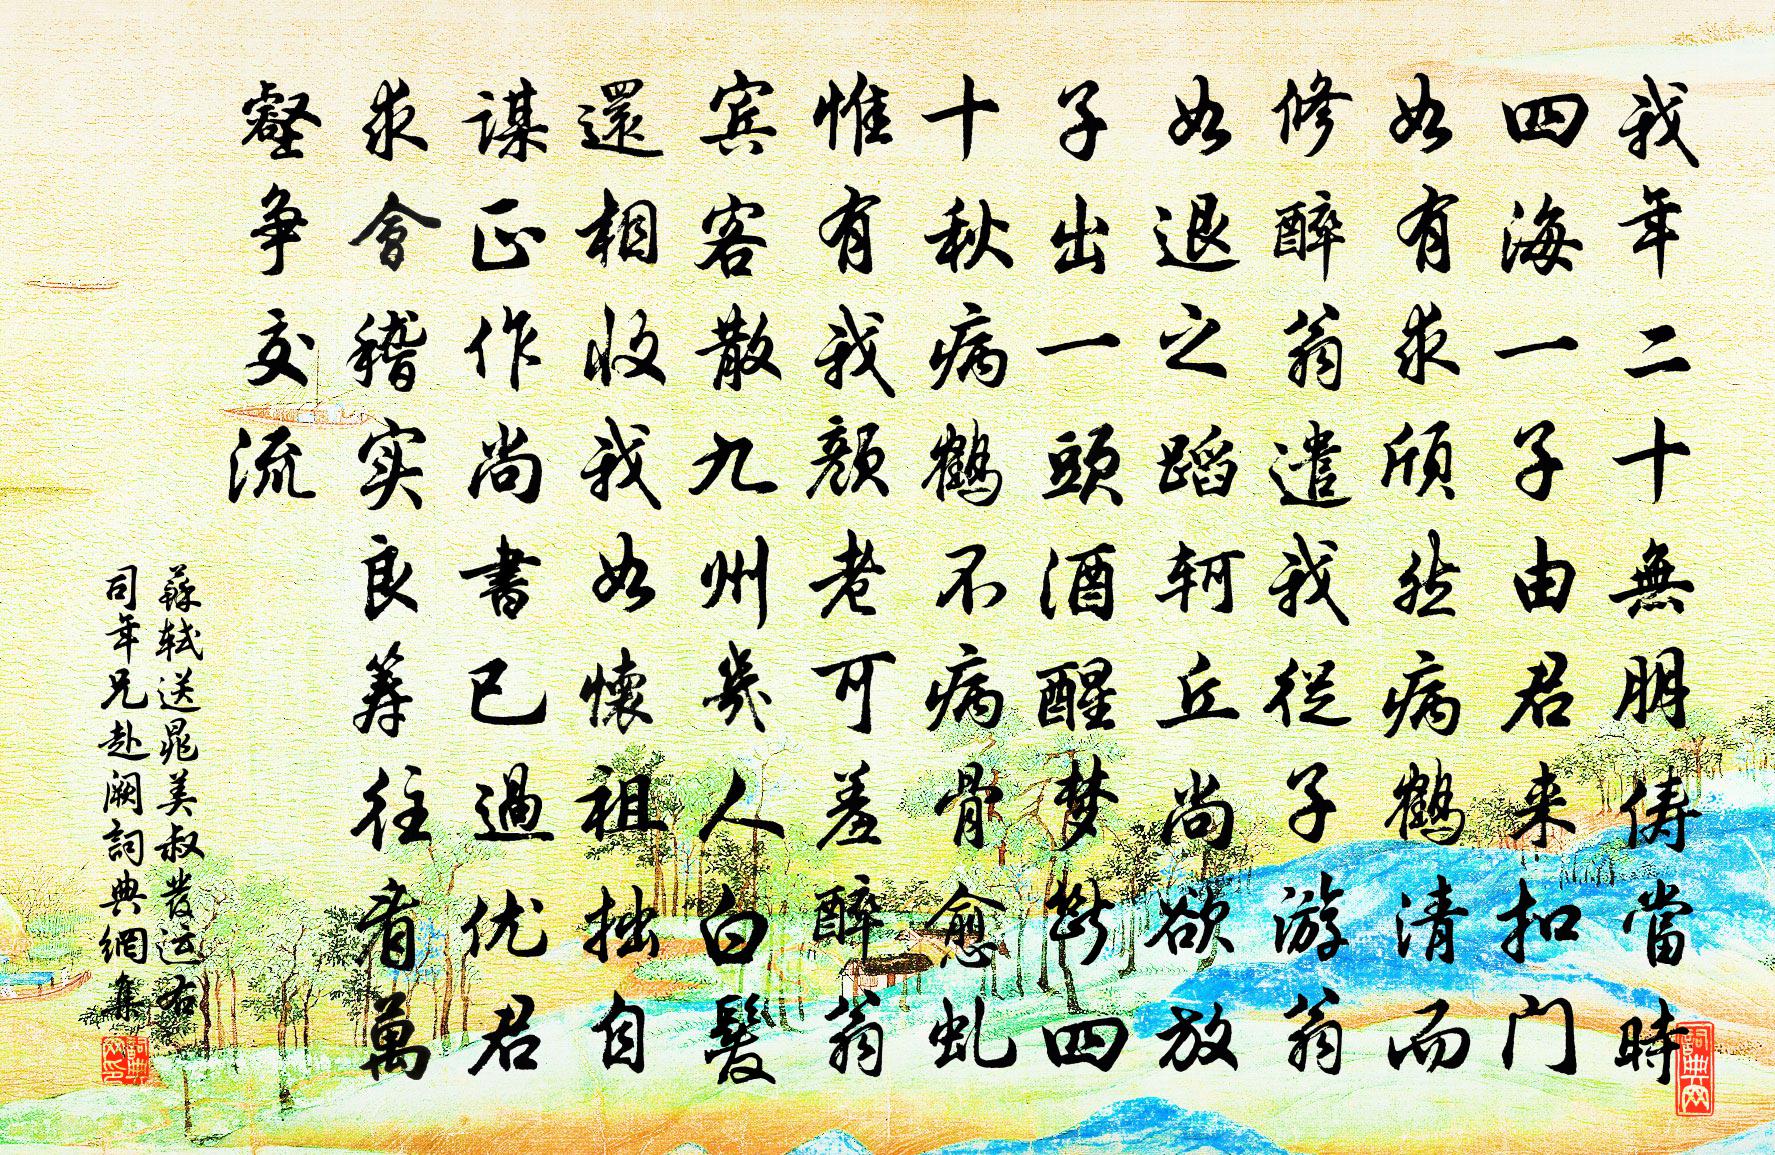 我年二十無朋儔當時
四海一子由君来扣门
如有求頎然病鶴清而
修醉翁遣我從子游翁
如退之蹈轲丘尚欲放
子出一頭酒醒梦斷四
十秋病鶴不病骨愈虬
惟有我顏老可羞醉翁
宾客散九州幾人白髮
還相收我如懷祖拙自
謀正作尚書已過优君
求會稽实良筹往看萬
壑争交流
蘇轼送晁美叔發运右
司年兄赴阙詞典網集
詞典网